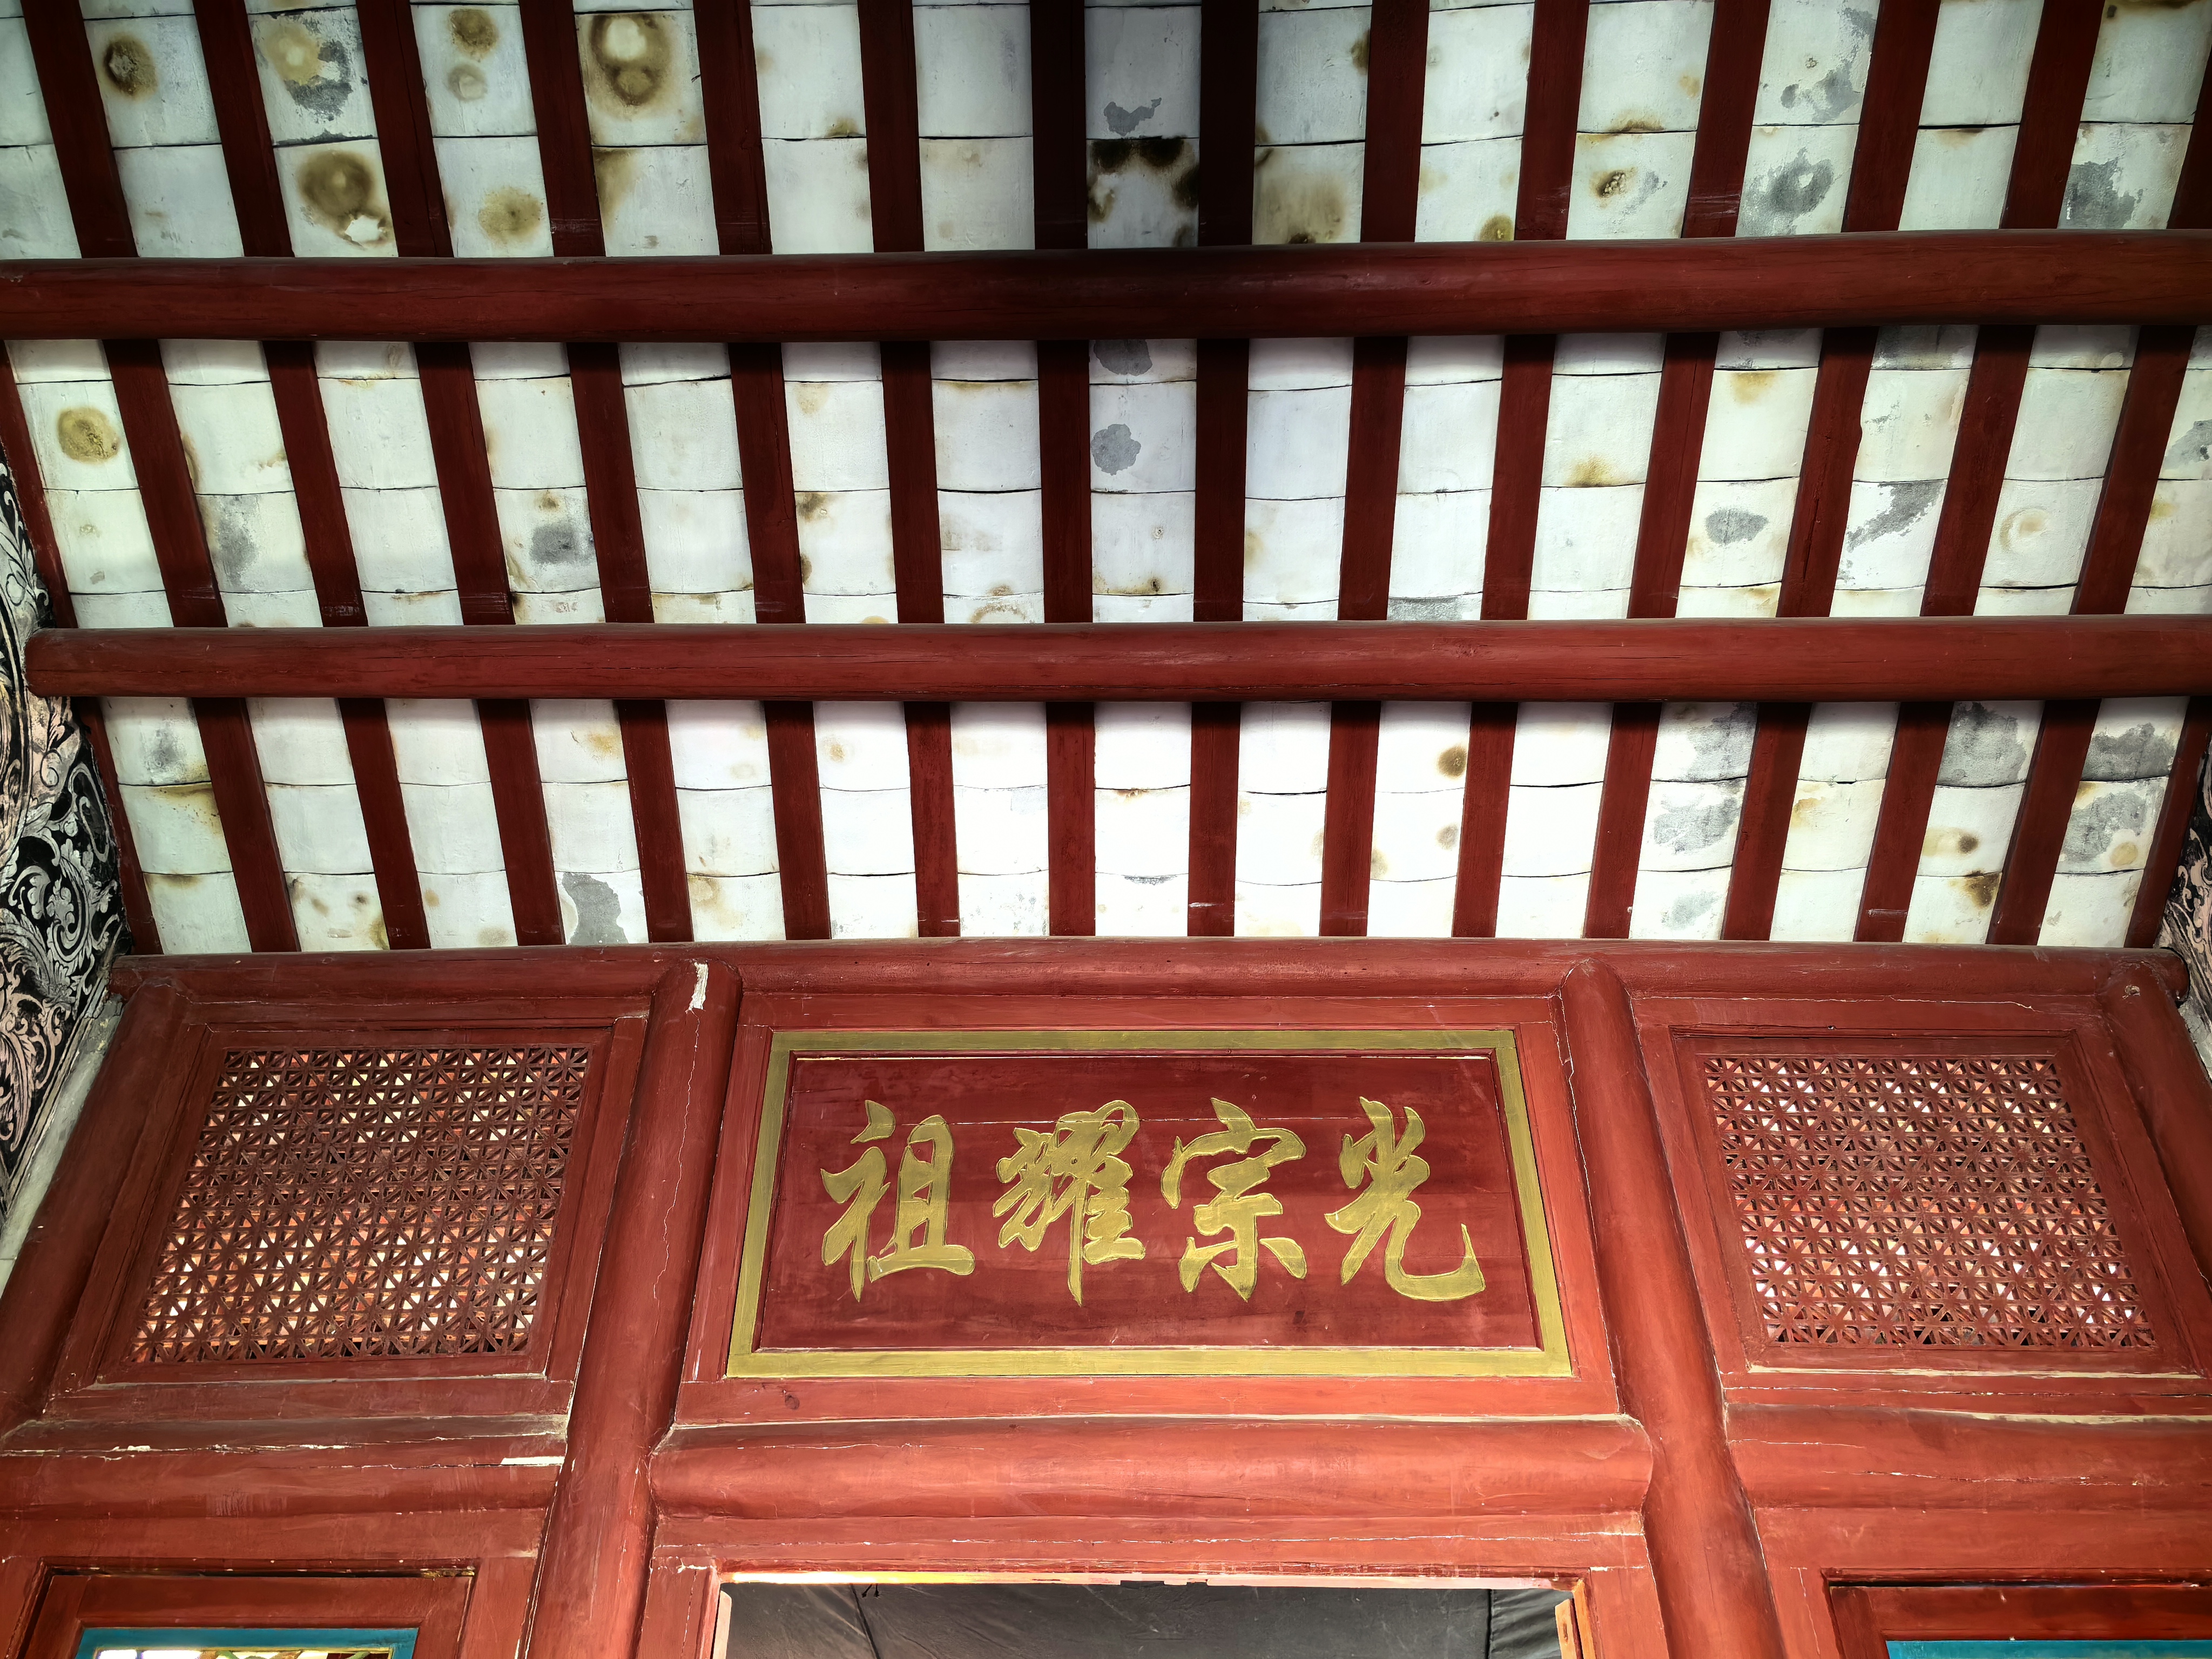 光宗耀祖